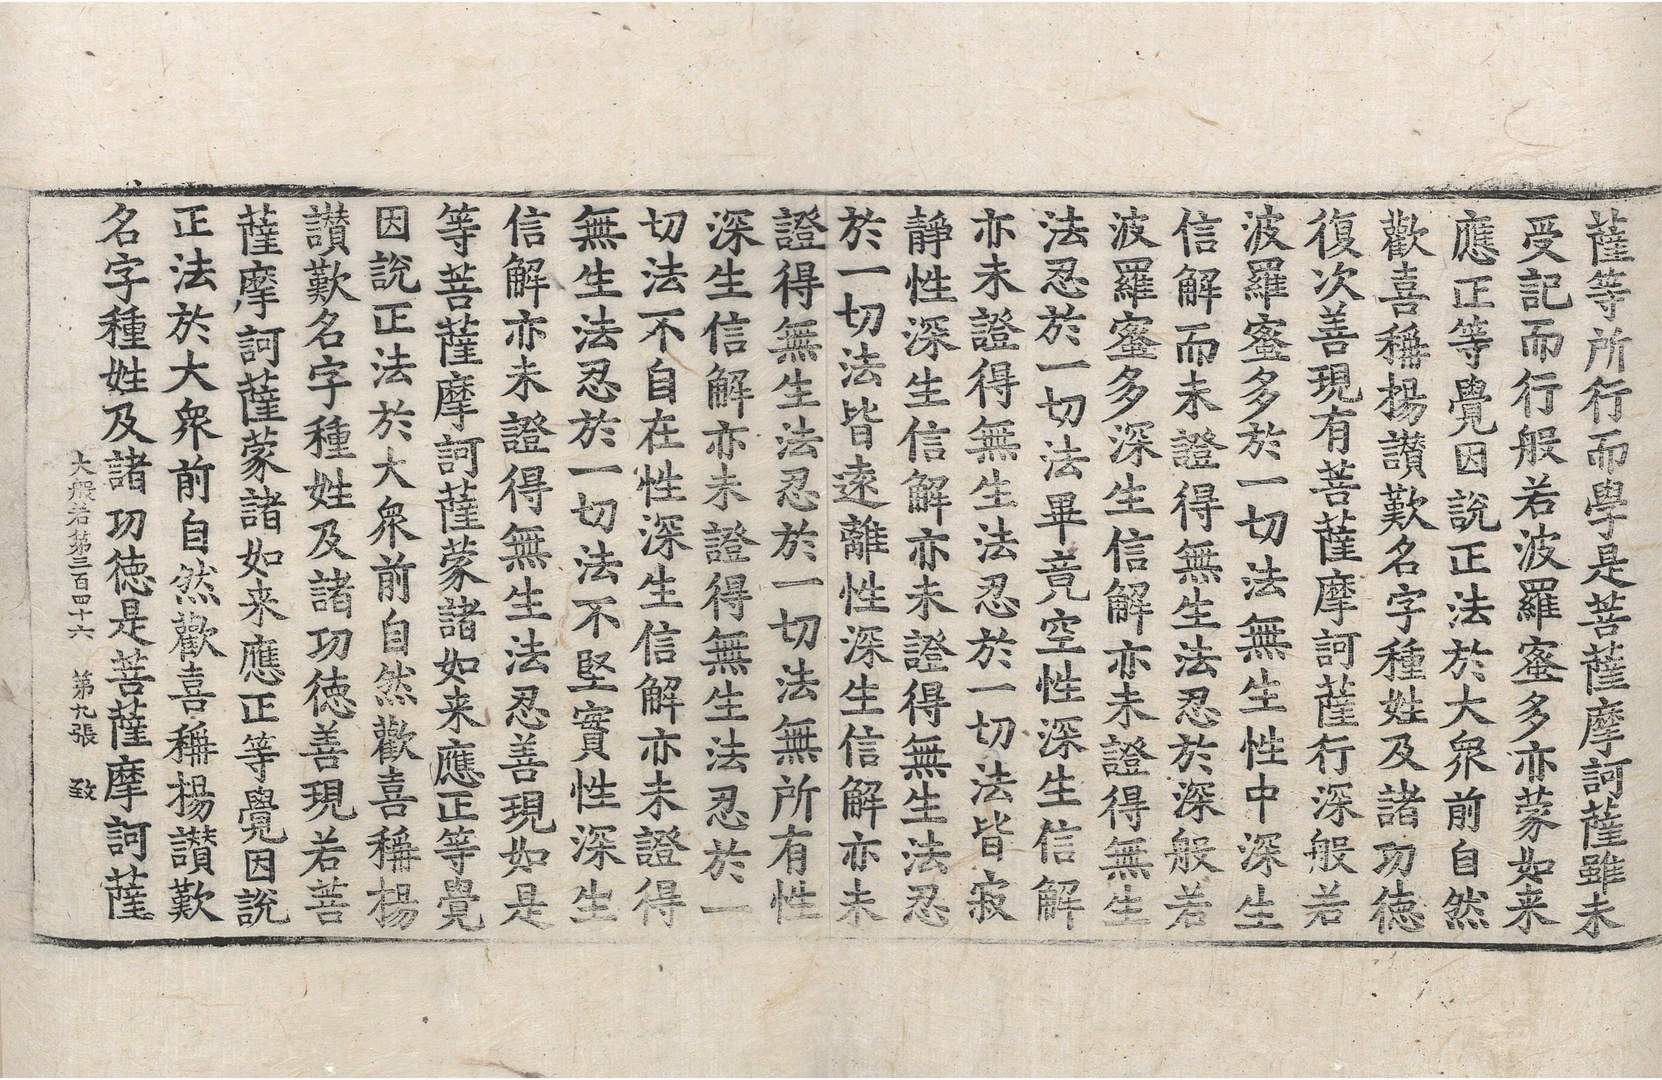 薩等所行而學是菩薩摩訶薩雖未
受記而行般若波羅蜜多亦蒙如来
應正等覺因說正法於大衆前自然
歡喜稱揚讃歎名字種姓及諸功德
復次善現有菩薩摩訶薩行深般若
波羅蜜多於一切法無生性中深生
信解而未證得無生法忍於深般若
波羅蜜多深生信解亦未證得無生
法忍於一切法畢竟空性深生信解
亦未證得無生法忍於一切法皆寂
靜性深生信解亦未證得無生法忍
於一切法皆遠離性深生信解亦未
證得無生法忍於一切法無所有性
深生信解亦未證得無生法忍於一
切法不自在性深生信解亦未證得
無生法忍於一切法不堅實性深生
信解亦未證得無生法忍善現如是
等菩薩摩訶薩蒙諸如来應正等覺
因說正法於大衆前自然歡喜稱揚
讃歎名字種姓及諸功德善現若菩
薩摩訶薩蒙諸如来應正等覺因說
正法於大衆前自然歡喜稱揚讃歎
名字種姓及諸功德是菩薩摩訶薩
大般若第三百四十六 第九張 致